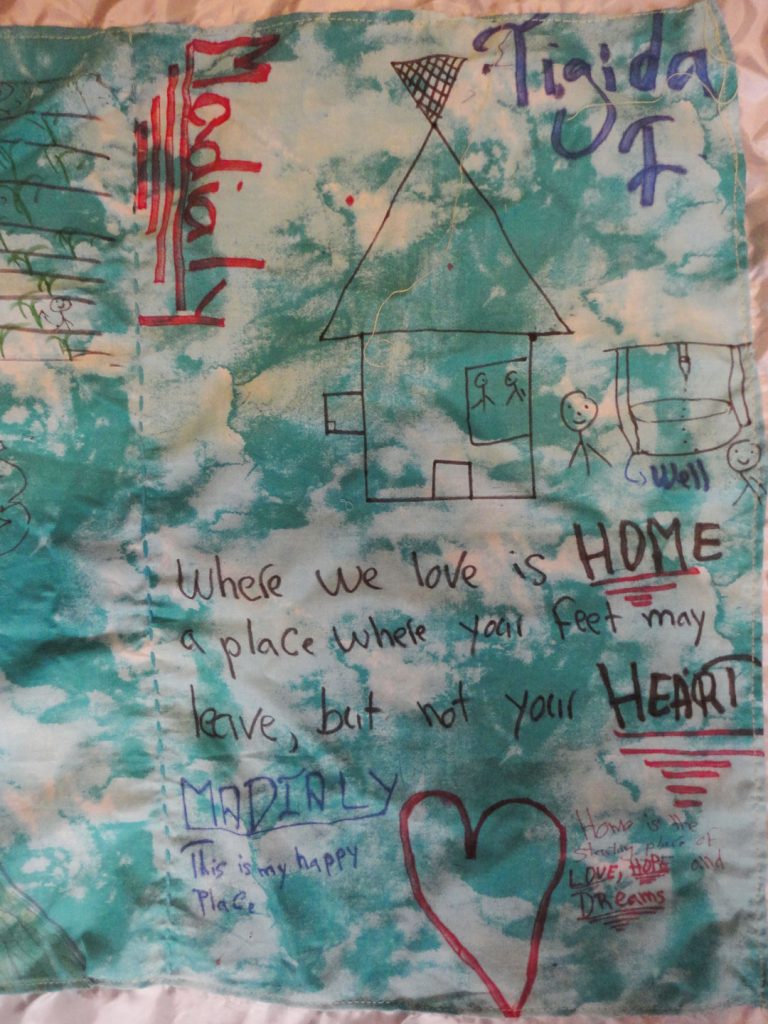 Madialy
Tigida
I
Well
Where we love is HOME
a place where your feet may
leave, but not your HEART
MADIALY
This is my happy
Place
Home is the
place of
LOVE, HOPE and
DREAMS